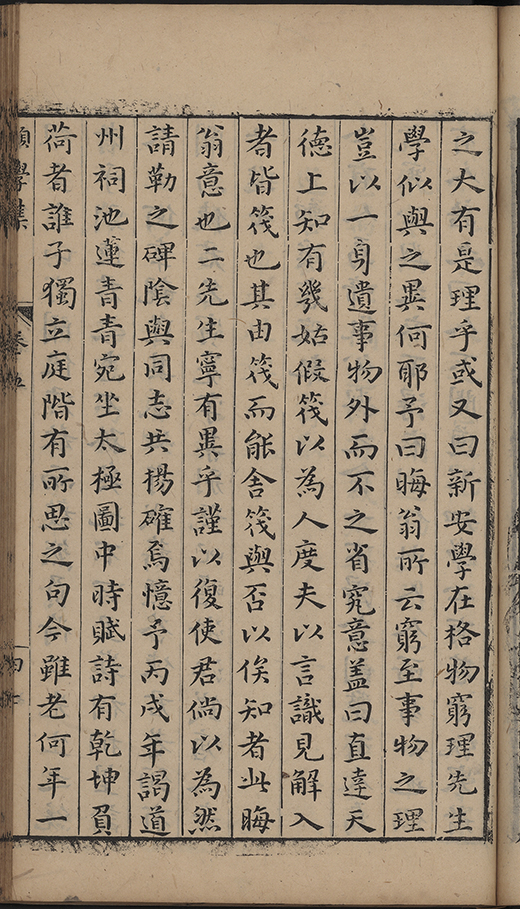 之大有是理乎或又曰新安學在格物窮理先生
學似與之異何耶予曰晦翁所云窮至事物之理
豈以一身遺事物外而不之省究意盖曰直達天
德上知有幾姑假筏以為人度夫以言識見解入
者皆筏也其由筏而能舍筏與否以俟知者此晦
翁意也二先生寧有異乎謹以復使君倘以為然
請勒之碑陰與同志共揚確焉憶予丙戌年謁道
州祠池蓮青青宛坐太極圖中時賦詩有乾坤負
荷者誰子獨立庭階有所思之句今雖老何年一
學集